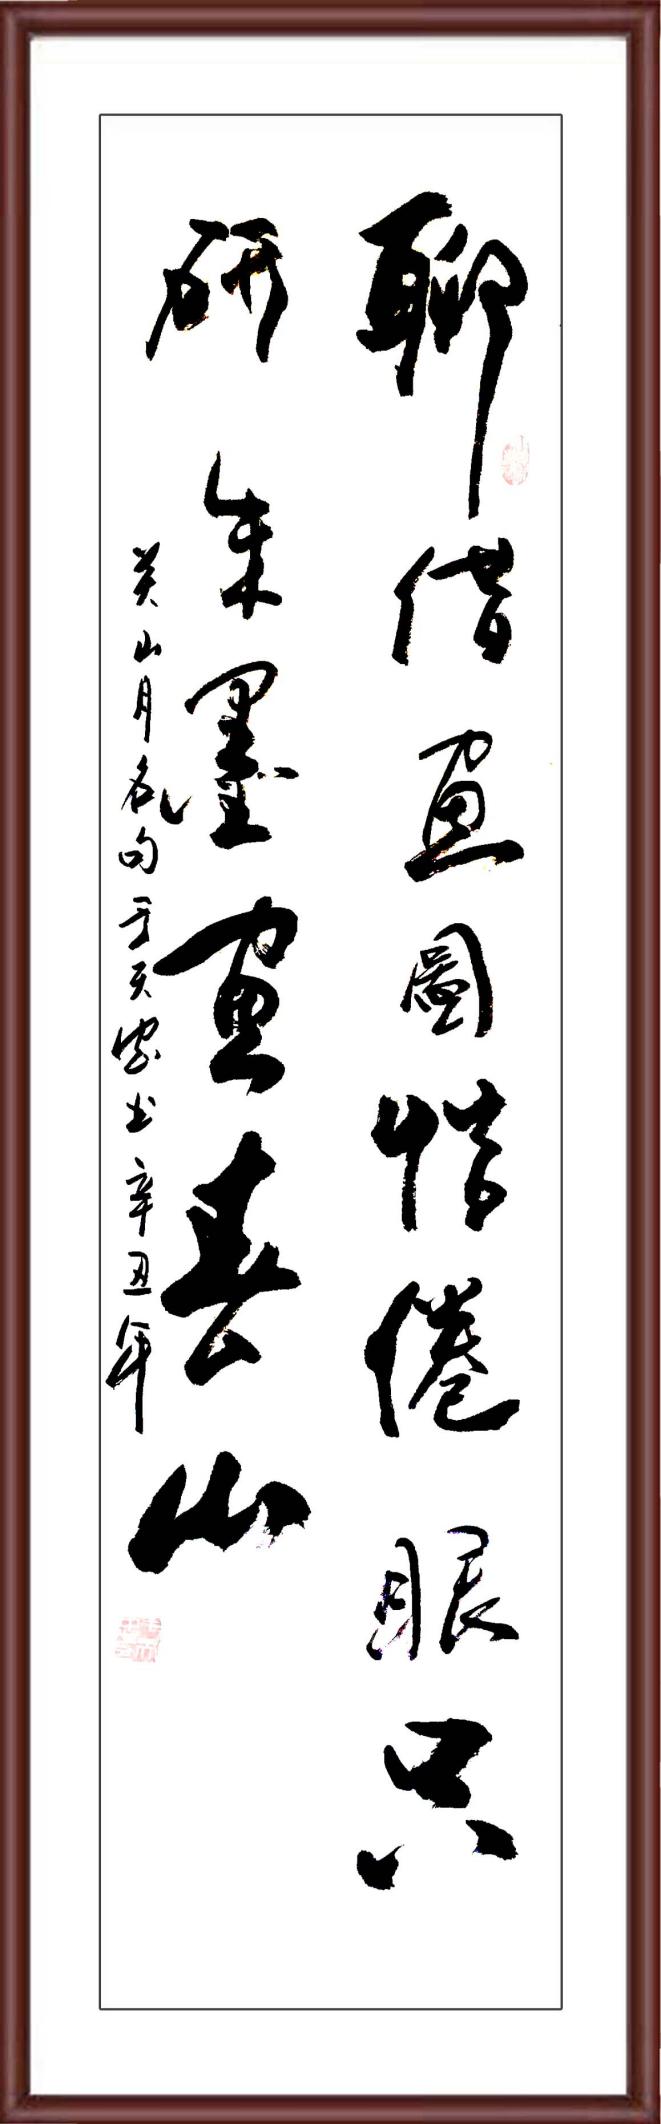 聊借畫圖情倦眼只
研朱墨畫春山
关山月名句于天书辛丑年